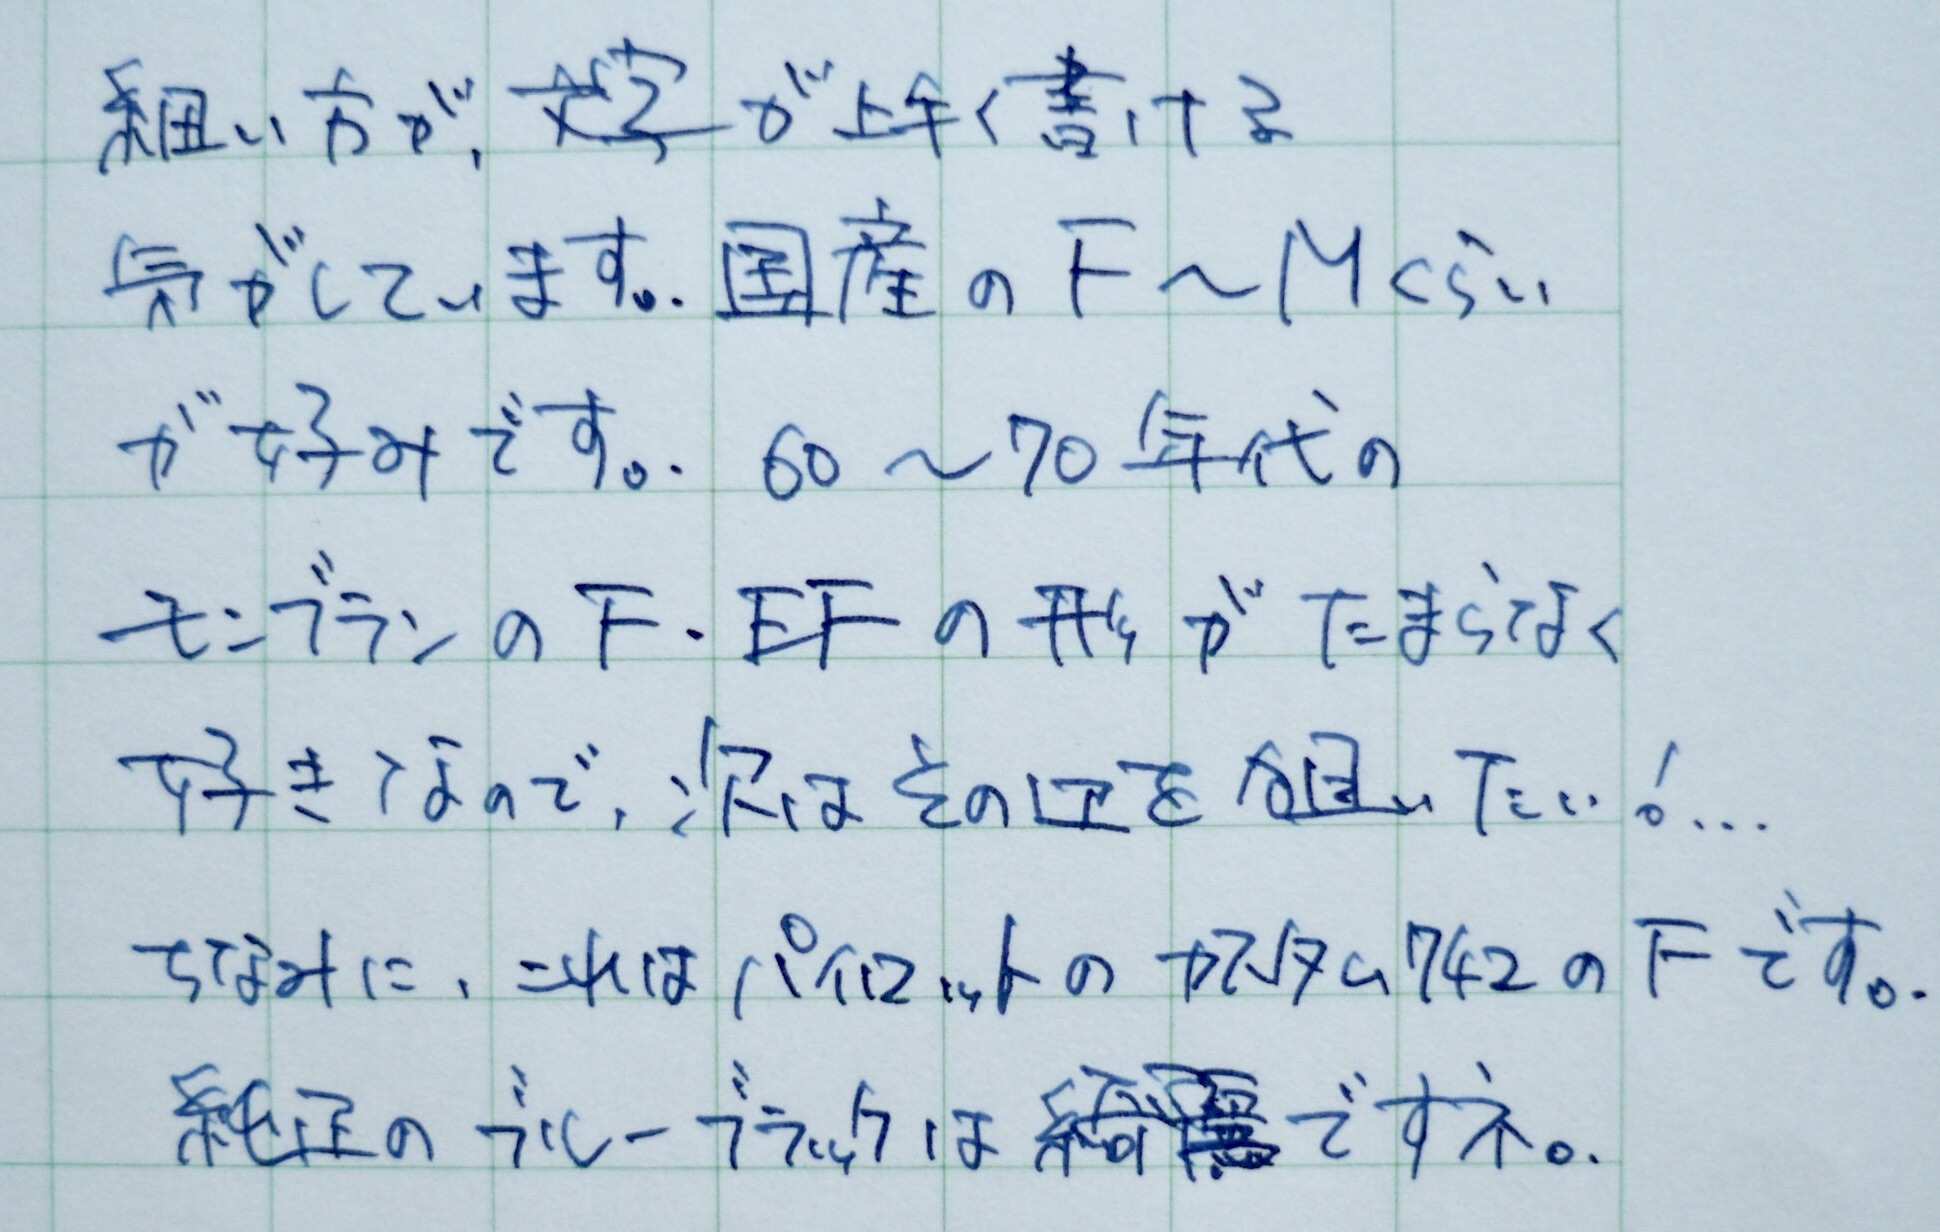 細い方が、文字が上手く書ける
気がしています。国産のF〜Mくらい
が好みです。60〜70年代の
モンブランのF・EFの形がたまらなく
好きなので、次はその辺を狙いたい!...
ちなみに、これはパイロットのカスタム742のFです。
純正のブルーブラックは綺麗ですネ。